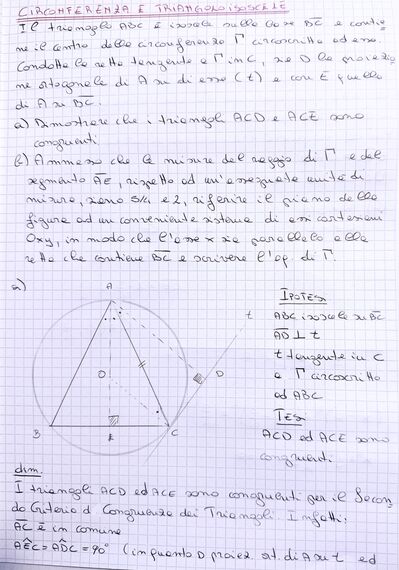 CIRCONFERENZA E TRIANGOLO ISOSCELE
Il triangolo ABC è isoscele sulla base BC e contie-
ne il centro della circonferenza Γ circoscritta ad esso.
Condotta la retta tangente a Γ in C, sia D la proiezio-
ne ortogonale di A su di essa (t) e con E quella
di A su BC.
a) Dimostrare che i triangoli ACD e ACE sono
congruenti
b) Ammesso che la misura del raggio di Γ e del
segmento AE, rispetto ad un'assegnata unità di
misura, siano 5/4 e 2, riferire il piano della
figura ad un conveniente sistema di assi cartesiani
Oxy, in modo che l'asse x sia parallelo alla
retta che contiene BC e scrivere l'eq. di Γ.
a)
A
O
B
E
C
D
t
IPOTESI
ABC isoscele su BC
AD ⊥ t
t tangente in C
a Γ circoscritta
ad ABC
TESI
ACD ed ACE sono
congruenti
dim.
I triangoli ACD ed ACE sono congruenti per il Secon-
do Criterio di Congruenza dei Triangoli. Infatti:
AC è in comune
AÊC = AD̂C = 90° (in quanto D proiez. ort. di A su t ed